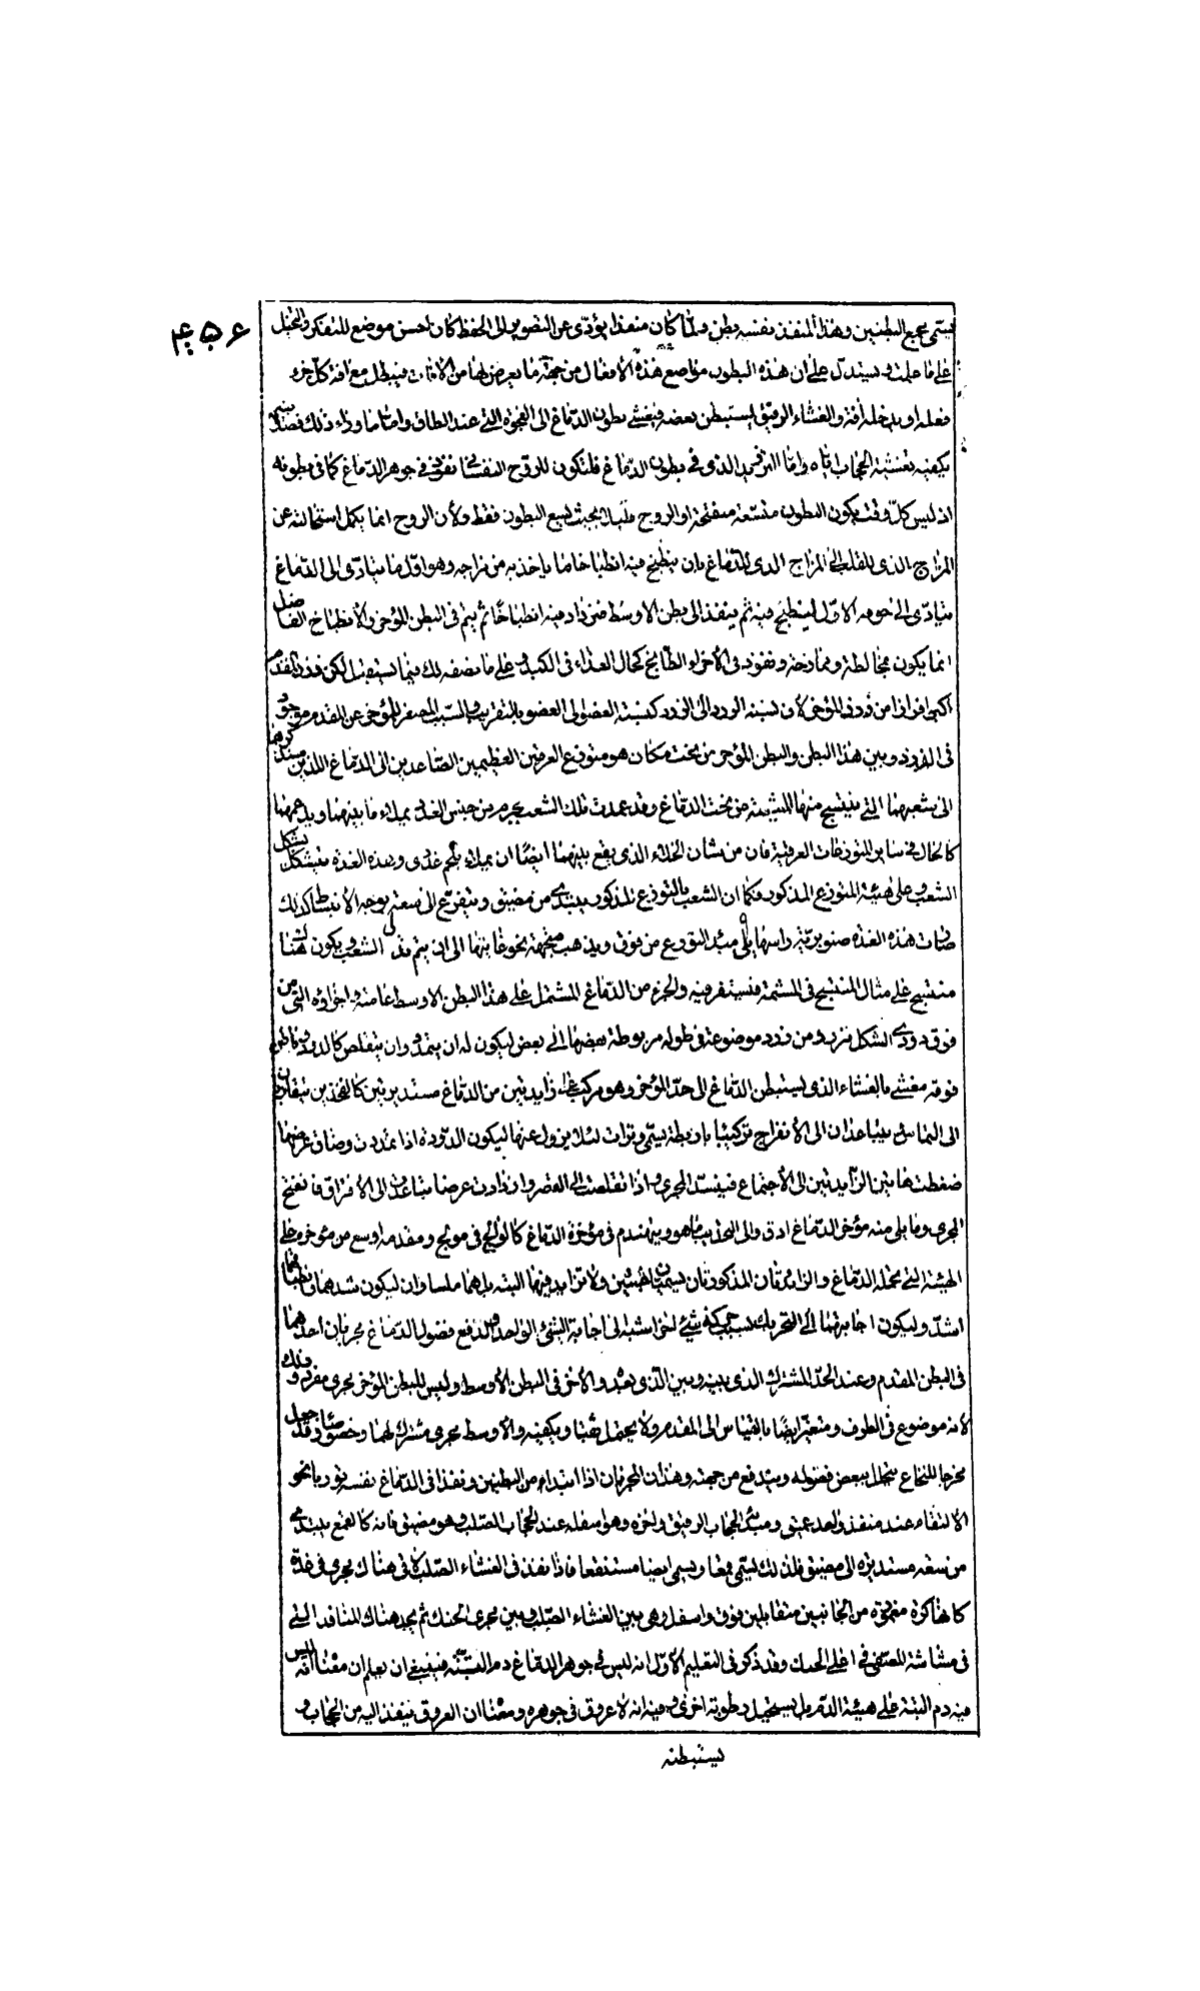 ۴۵۶
يسمى مجمع البطنين وهذا المنفذ نفسه بطن ولما كان منفذا يؤدى عن التصوير الى الحفظ كان احسن موضع للتفكر والتخيل
على ما علمت ويستدل على ان هذه البطون مواضع هذه الافعال من جهة ما يعرض لها من الافات فيبطل مع افة كل جزء
فعله او يدخله افة والغشاء الرقيق يستبطن بعضه فيغشى بطون الدماغ الى الفجوة التى عند الطاق واما ما وراء ذلك فصلابته
يكفيه تغشية الحجاب اياه واما التزريد الذى فى بطون الدماغ فلتكون للروح النفسانى نفوذ فى جوهر الدماغ كما فى بطونه
اذ ليس كل وقت يكون البطون متسعة منفتحة او الروح قليلا بحيث يسع البطون فقط ولان الروح انما يكمل استحالته عن
المزاج الذى للقلب الى المزاج الذى للدماغ بان ينطبخ فيه انطباخا ما ياخذ به من مزاجه وهو اول ما يتادى الى الدماغ
يتادى الى جوفه الاول لينطبخ فيه ثم ينفذ الى بطن الاوسط فيزداد فيه انطباخا ثم يتم فى البطن المؤخر والانطباخ الفاضل
انما يكون بمخالطة وممازجة ونفوذ فى الاجزاء الطابخ كحال الغذاء فى الكبد على ما نصفه لك فيما يستقبل لكن زرد المقدم
اكثر افرازا من زرد المؤخر لان نسبة الزرد الى الزرد كنسبة العضو الى العضو بالتقريب والسبب المصغر للمؤخر عن المقدم موجود
فى الزرد وبين هذا البطن والبطن المؤخر من تحت مكان هو متوزع العرقين العظيمين الصاعدين الى الدماغ اللذين ستذكرهما
الى شعبهما التى ينتسج منها المشيمة من تحت الدماغ وقد عمدت تلك الشعب بجرم من جنس الغدد يملاء ما بينهما ويدعمها
كالحال فى ساير المتوزعات العرقية فان من شان الخلاء الذى يقع بينهما ايضا ان يملاء بلحم غددى وهذه الغدة يتشكل بشكل
الشعب وعلى هيئة المتوزع المذكور فكما ان الشعب بالتوزع المذكور يبتدى من مضيق ويتفرع الى سعة يوجبه الانبساط كذلك
صارت هذه الغدة صنوبرية راسها يلى مبدا التوزع من فوق ويذهب متجهة نحو غايتها الى ان يتم تدلى الشعب ويكون هناك
منتسج على مثال المنتسج فى المشيمة فيستقر فيه والجزء من الدماغ المشتمل على هذا البطن الاوسط عامة واجزاؤه التى من
فوق دودى الشكل مزرد من زرد موضوعة فى طوله مربوطة بعضها الى بعض ليكون له ان يتمدد وان يتقلص كالدود وباطن
فوقه مغشى بالغشاء الذى يستبطن الدماغ الى حد المؤخر وهو مركب على زايدتين من الدماغ مستديرتين كالفخذين يتقاربان
الى التماس يتباعدان الى الانفراج تركيبا باربطة يسمى وترات لئلا يزول عنها ليكون الدودة اذا تمددت وضاق عرضها
ضغطت هاتين الزايدتين الى الاجتماع فينسد المجرى واذا تقلصت الى القصر وازدادت عرضا تباعدت الى الافتراق فانفتح
المجرى وما يلى منه مؤخر الدماغ ادق والى التحدب ما هو ويتهندم فى مؤخر الدماغ كالوالج فى مولج ومقدمه اوسع من مؤخره على
الهيئة التى يحتملها الدماغ والزائدتان المذكورتان يسميان الليتين ولا تزايد فيهما البتة بل هما ملساوان ليكون سدهما وانطباقهما
اشد وليكون اجابتهما الى التحريك بسبب حركة شئ اخر اشبه الى اجابة الشئ الواحد ولدفع فضول الدماغ مجريان احدهما
فى البطن المقدم وعند الحد المشترك الذى بينه وبين الذى بعده والاخر فى البطن الاوسط وليس للبطن المؤخر مجرى مفرد وذلك
لانه موضوع فى الطرف وصغير ايضا بالقياس الى المقدم ولا يحتمل ثقبا ويكفيه والاوسط مجرى مشترك لهما وخصوصا وقد جعل
مخرجا للنخاع يتحلل بعض فضوله ويندفع من جهته وهذان المجريان اذا ابتداء من البطنين ونفذا فى الدماغ نفسه توربا نحو
الالتقاء عند منفذ واحد عميق ومبدئه الحجاب الرقيق واخره وهو اسفله عند الحجاب الصلب وهو مضيق فانه كالقمع يبتدى
من سعة مستديرة الى مضيق فلذلك يسمى قمعا ويسمى ايضا مستنقعا فاذا نفذ فى الغشاء الصلب لاقى هناك مجرى فى غدة
كانها كرة مغموزة من الجانبين متقابلين فوق واسفل وهى بين الغشاء الصلب وبين مجرى الحنك ثم يجد هناك المنافذ التى
فى مشاشة المصفى فى اعلى الحنك وقد ذكر فى التعليم الاول انه ليس فى جوهر الدماغ دم البتة فينبغى ان يعلم ان معناه انه ليس
فيه دم البتة على هيئة الدم بل يستحيل رطوبة اخرى وفيه انه لا عروق فى جوهره ومعناه ان العروق ينفذ اليه من الحجاب و
يستبطنه